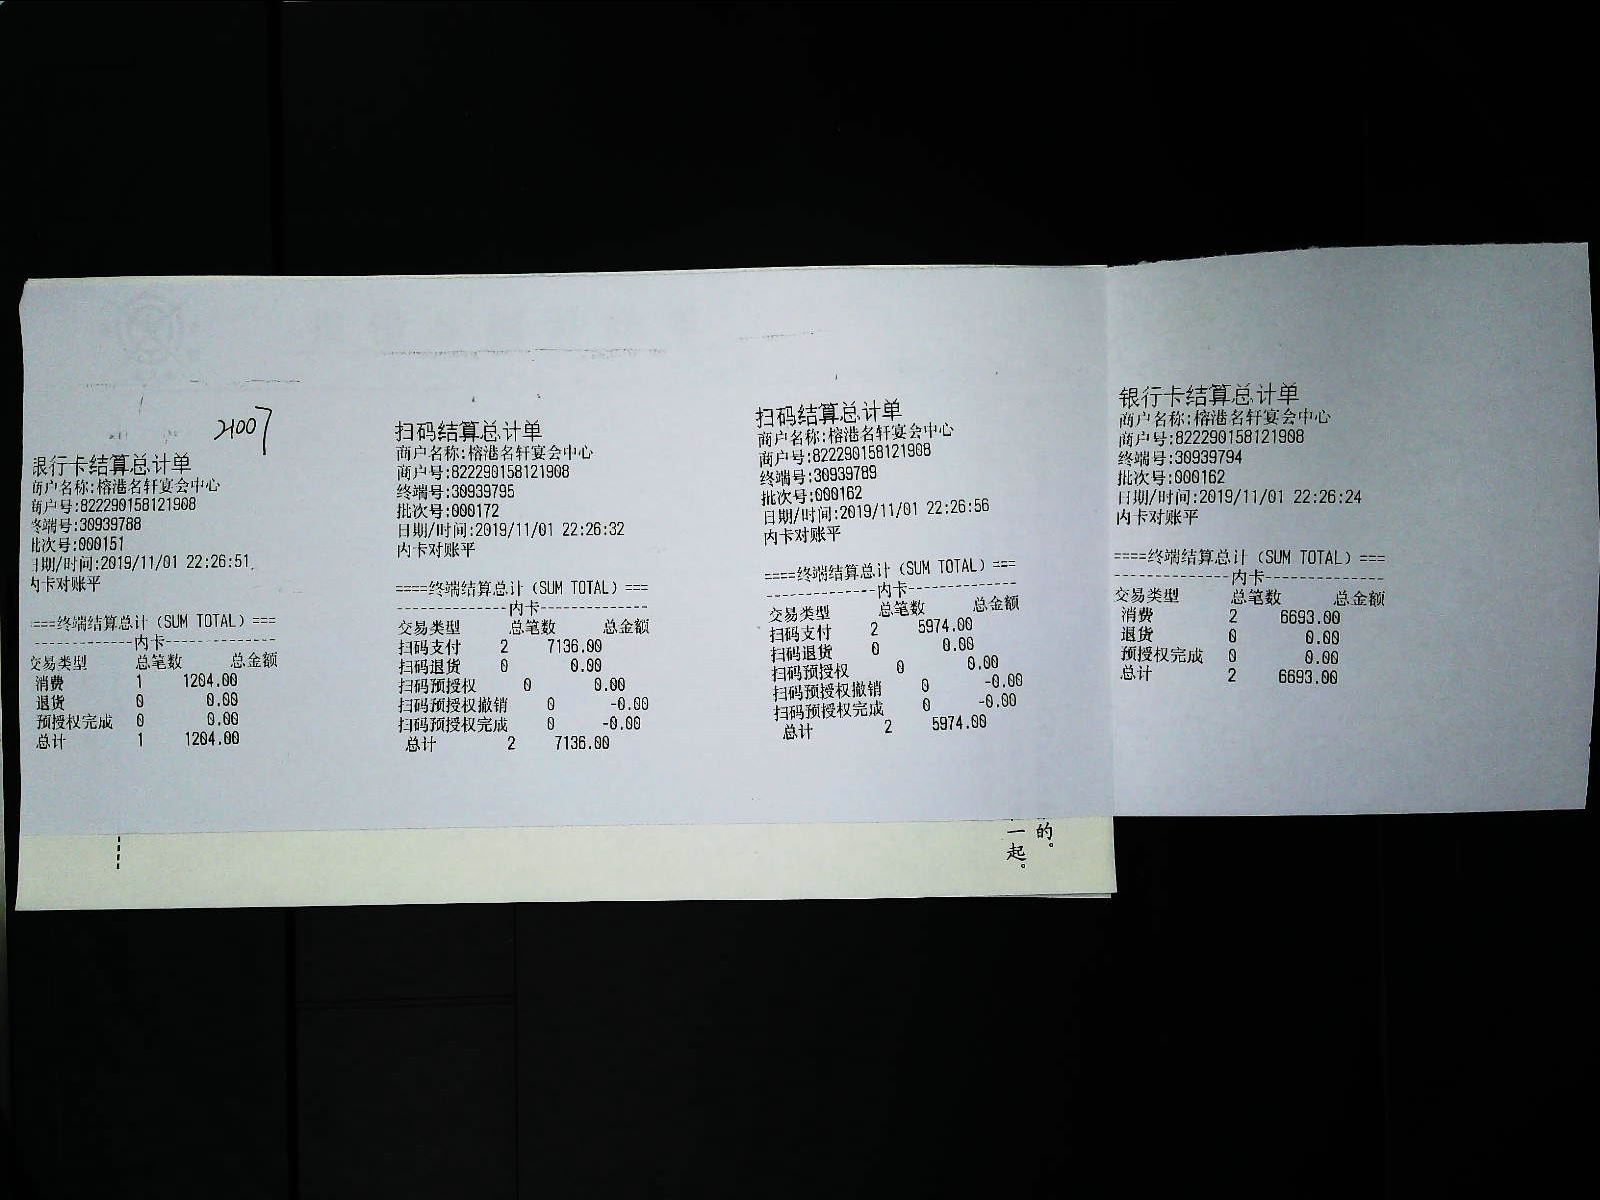 21007
银行卡结算总计单
商户名称:榕港名轩宴会中心
商户号:822290158121908
终端号:30939788
批次号:000151
日期/时间:2019/11/01 22:26:51
内卡对账平
====终端结算总计(SUM TOTAL)===
---------------内卡---------------
交易类型 总笔数 总金额
消费 1 1204.00
退货 0 0.00
预授权完成 0 0.00
总计 1 1204.00
扫码结算总计单
商户名称:榕港名轩宴会中心
商户号:822290158121908
终端号:30939795
批次号:000172
日期/时间:2019/11/01 22:26:32
内卡对账平
====终端结算总计(SUM TOTAL)===
---------------内卡---------------
交易类型 总笔数 总金额
扫码支付 2 7136.00
扫码退货 0 0.00
扫码预授权 0 0.00
扫码预授权撤销 0 -0.00
扫码预授权完成 0 -0.00
总计 2 7136.00
扫码结算总计单
商户名称:榕港名轩宴会中心
商户号:822290158121908
终端号:30939789
批次号:000162
日期/时间:2019/11/01 22:26:56
内卡对账平
====终端结算总计(SUM TOTAL)===
---------------内卡---------------
交易类型 总笔数 总金额
扫码支付 2 5974.00
扫码退货 0 0.00
扫码预授权 0 0.00
扫码预授权撤销 0 -0.00
扫码预授权完成 0 -0.00
总计 2 5974.00
银行卡结算总计单
商户名称:榕港名轩宴会中心
商户号:822290158121908
终端号:30939794
批次号:000162
日期/时间:2019/11/01 22:26:24
内卡对账平
====终端结算总计(SUM TOTAL)===
---------------内卡---------------
交易类型 总笔数 总金额
消费 2 6693.00
退货 0 0.00
预授权完成 0 0.00
总计 2 6693.00
的。
一起。